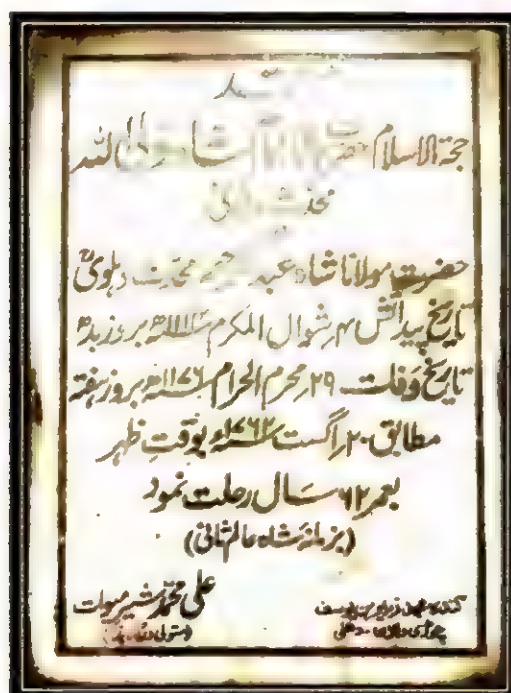 مرقد
حجۃ الاسلام حضرت الامام شاہ ولی اللہ
محدث دہلوی
حضرت مولانا شاہ عبد محدث دہلویؒ
تاریخ پیدائش ۴ر شوال المکرم ۱۱۱۴ھ بروز بدھ
تاریخ وفات ۲۹ر محرم الحرام ۱۱۷۶ھ بروز ہفتہ
مطابق ۲۰ر اگست ۱۷۶۲ء بوقتِ ظہر
بعمر ۶۲ سال رحلت نمود
(بزمانہ شاہ عالم ثانی)
علی محمد شیر میوات